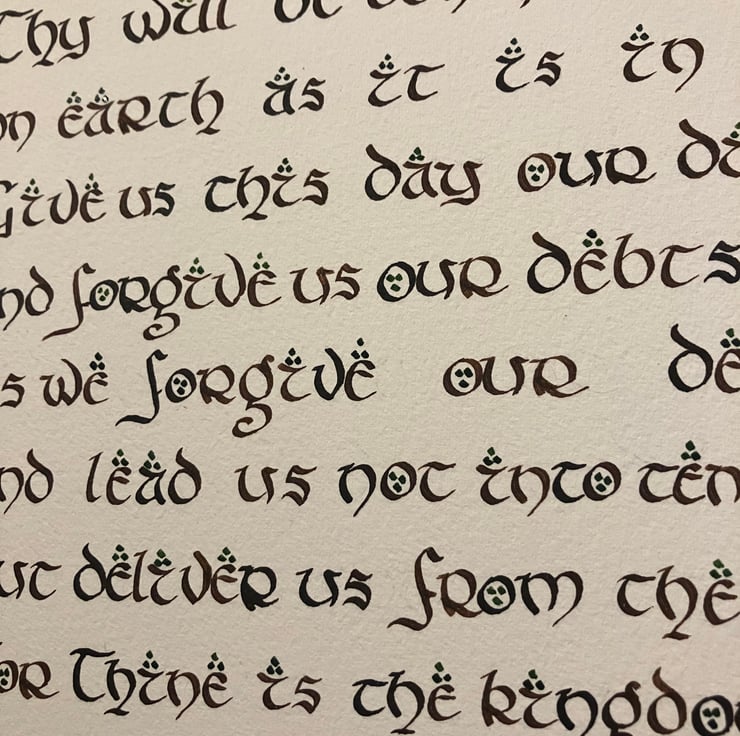 Thy will be
on earth as it is in
Give us this day our
nd forgive us our debts
s we forgive our de
nd lead us not into tem
ut deliver us from the
or Thine is the kingdo